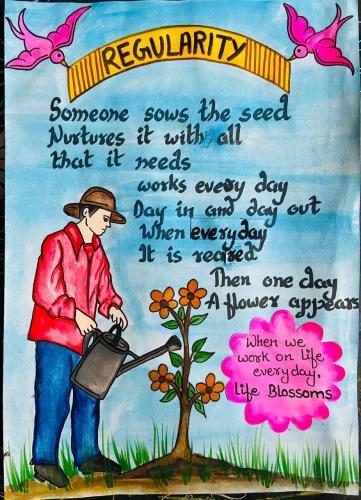 REGULARITY
Someone sows the seed
Nurtures it with all
that it needs
works every day
Day in and day out
When everyday
It is reared
Then one day
A flower appears
When we
work on life
everyday.
Life Blossoms